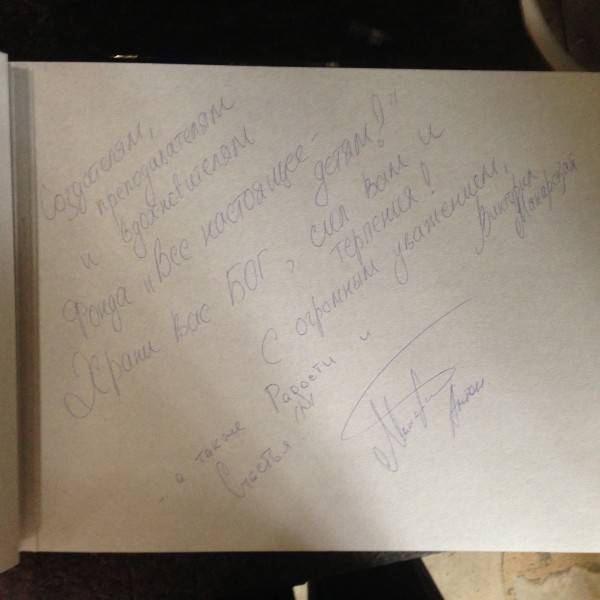 Создателям,
преподавателям
и вдохновителям
Фонда „Все настоящее -
детям!"
Храни вас БОГ, сил вам и
терпения!
С огромным уважением,
Виктория
Макарская
- а также Радости и
Счастья !!!
Антон